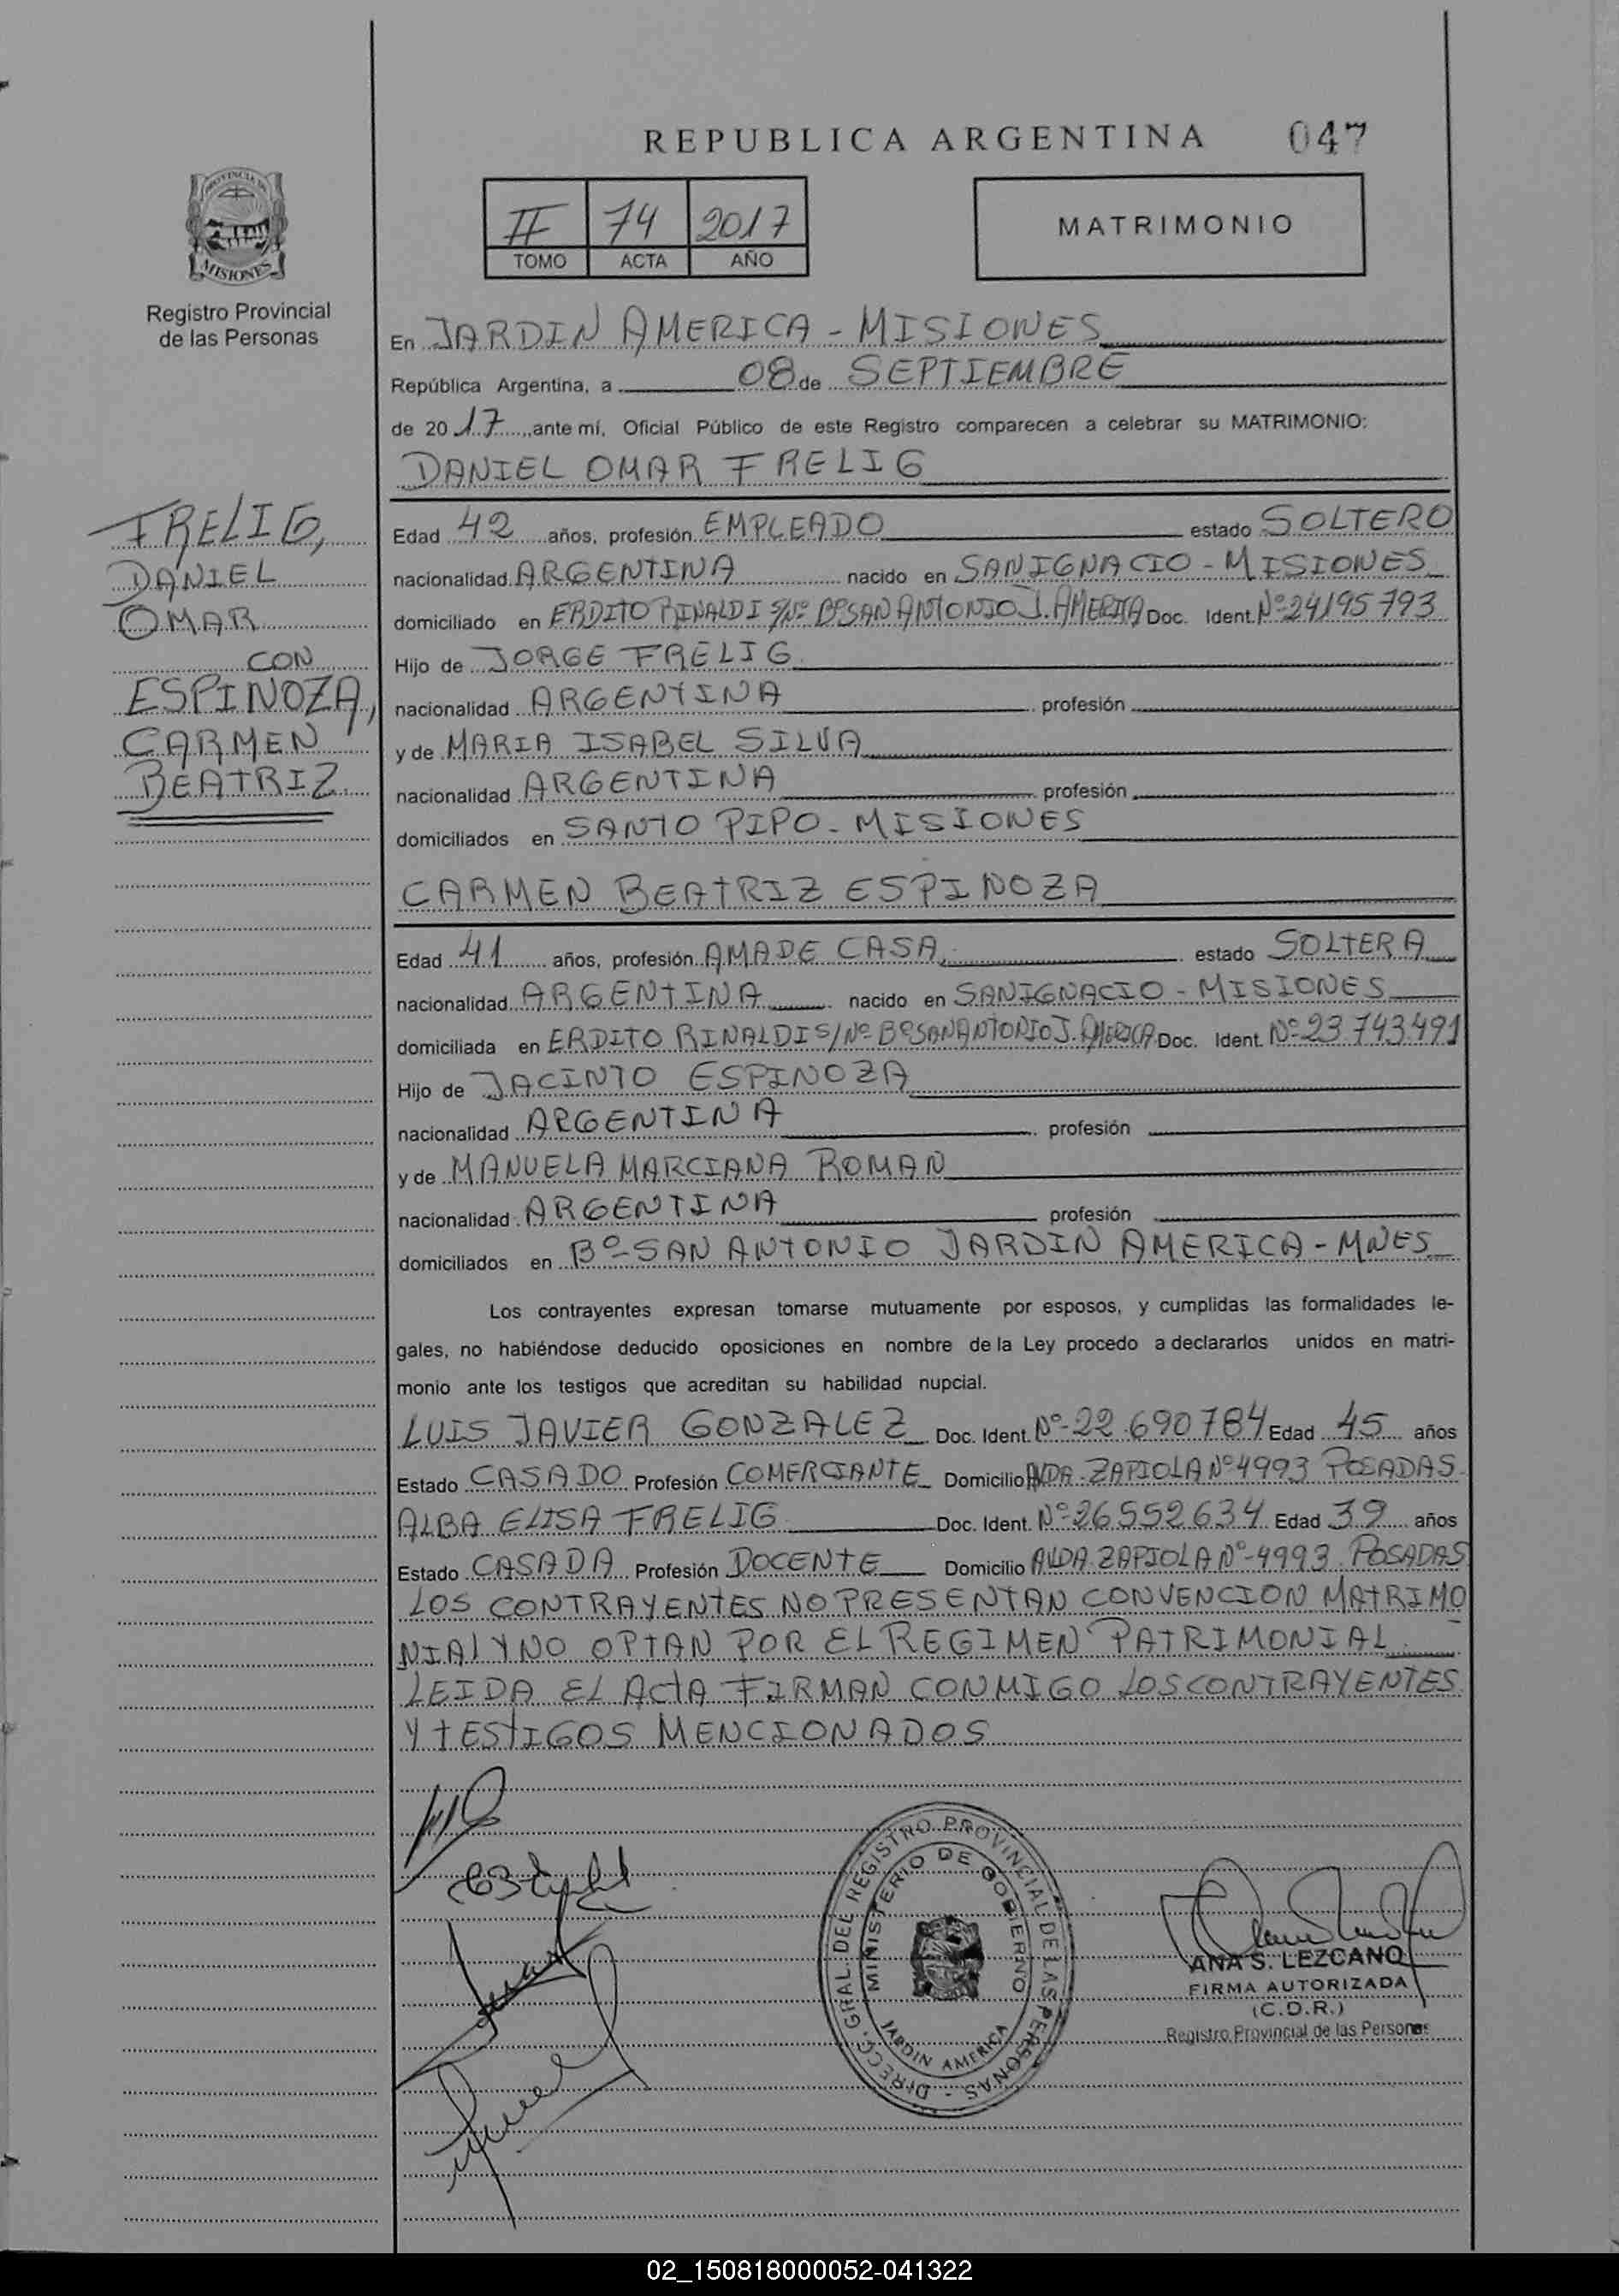 REPUBLICA ARGENTINA 047
PROVINCIA DE
MISIONES
Registro Provincial
de las Personas
II 74 2017
TOMO ACTA AÑO
MATRIMONIO
En JARDIN AMERICA - MISIONES
República Argentina, a 08 de SEPTIEMBRE
de 2017, ante mí, Oficial Público de este Registro comparecen a celebrar su MATRIMONIO:
DANIEL OMAR FRELIG
FRELIG,
DANIEL
OMAR
CON
ESPINOZA,
CARMEN
BEATRIZ.
Edad 42 años, profesión EMPLEADO estado SOLTERO
nacionalidad ARGENTINA nacido en SAN IGNACIO - MISIONES
domiciliado en ERDITO RINALDI S/Nº Bº SAN ANTONIO J. AMERICA Doc. Ident. Nº 24195793
Hijo de JORGE FRELIG
nacionalidad ARGENTINA profesión
y de MARIA ISABEL SILVA
nacionalidad ARGENTINA profesión
domiciliados en SANTO PIPO - MISIONES
CARMEN BEATRIZ ESPINOZA
Edad 41 años, profesión AMA DE CASA estado SOLTERA
nacionalidad ARGENTINA nacido en SAN IGNACIO - MISIONES
domiciliada en ERDITO RINALDI S/Nº Bº SAN ANTONIO J. AMERICA Doc. Ident. Nº 23743491
Hijo de JACINTO ESPINOZA
nacionalidad ARGENTINA profesión
y de MANUELA MARCIANA ROMAN
nacionalidad ARGENTINA profesión
domiciliados en Bº SAN ANTONIO JARDIN AMERICA - MNES
Los contrayentes expresan tomarse mutuamente por esposos, y cumplidas las formalidades le-
gales, no habiéndose deducido oposiciones en nombre de la Ley procedo a declararlos unidos en matri-
monio ante los testigos que acreditan su habilidad nupcial.
LUIS JAVIER GONZALEZ Doc. Ident. Nº 22.690784 Edad 45 años
Estado CASADO Profesión COMERCIANTE Domicilio AVDA. ZAPIOLA Nº 4993 POSADAS
ALBA ELISA FRELIG Doc. Ident. Nº 26552634 Edad 39 años
Estado CASADA Profesión DOCENTE Domicilio AVDA. ZAPIOLA Nº 4993 POSADAS
LOS CONTRAYENTES NO PRESENTAN CONVENCION MATRIMO
NIAL Y NO OPTAN POR EL REGIMEN PATRIMONIAL
LEIDA EL ACTA FIRMAN CONMIGO LOS CONTRAYENTES
Y TESTIGOS MENCIONADOS
DIRECC. GRAL. DEL REGISTRO PROVINCIAL DE LAS PERSONAS -
MINISTERIO DE GOBIERNO
JARDIN AMERICA
ANA S. LEZCANO
FIRMA AUTORIZADA
(C.D.R.)
Registro Provincial de las Personas
02_150818000052-041322